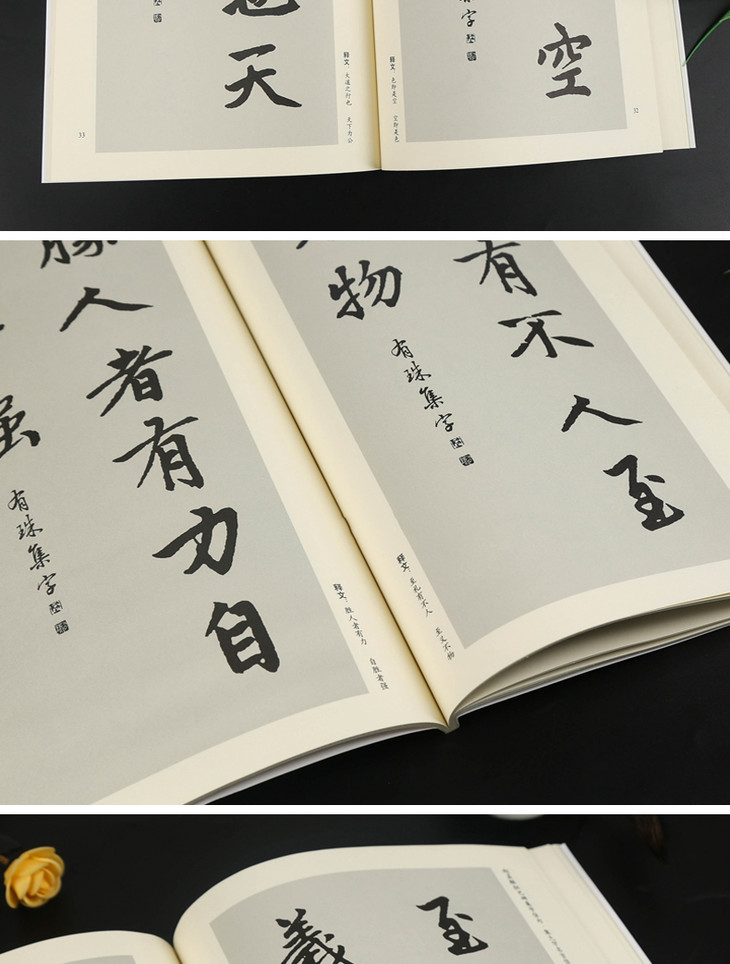 32
空
字
释文：色即是空 空即是色
也天
释文：大道之行也 天下为公
33
有不人至
物
有珠集字
释文：至礼有不人 至义不物
勝人者有力自
强
有珠集字
释文：胜人者有力 自胜者强
至
義